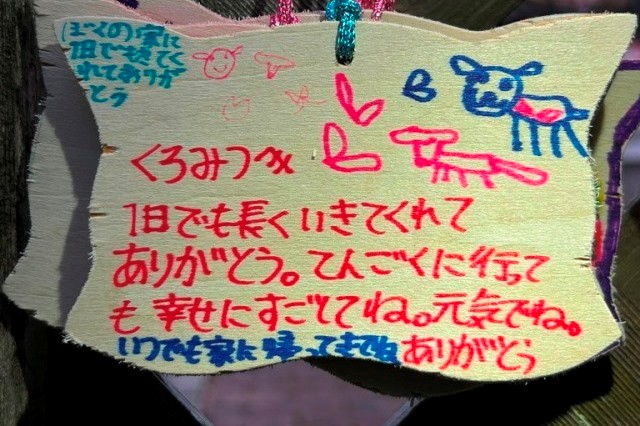 ぼくの家に
1日でもきてく
れてありが
とう
くろみつ
1日でも長くいきてくれて
ありがとう。てんごくに行って
も幸せにすごしてね。元気でね。
いつでも家に帰ってきてね ありがとう